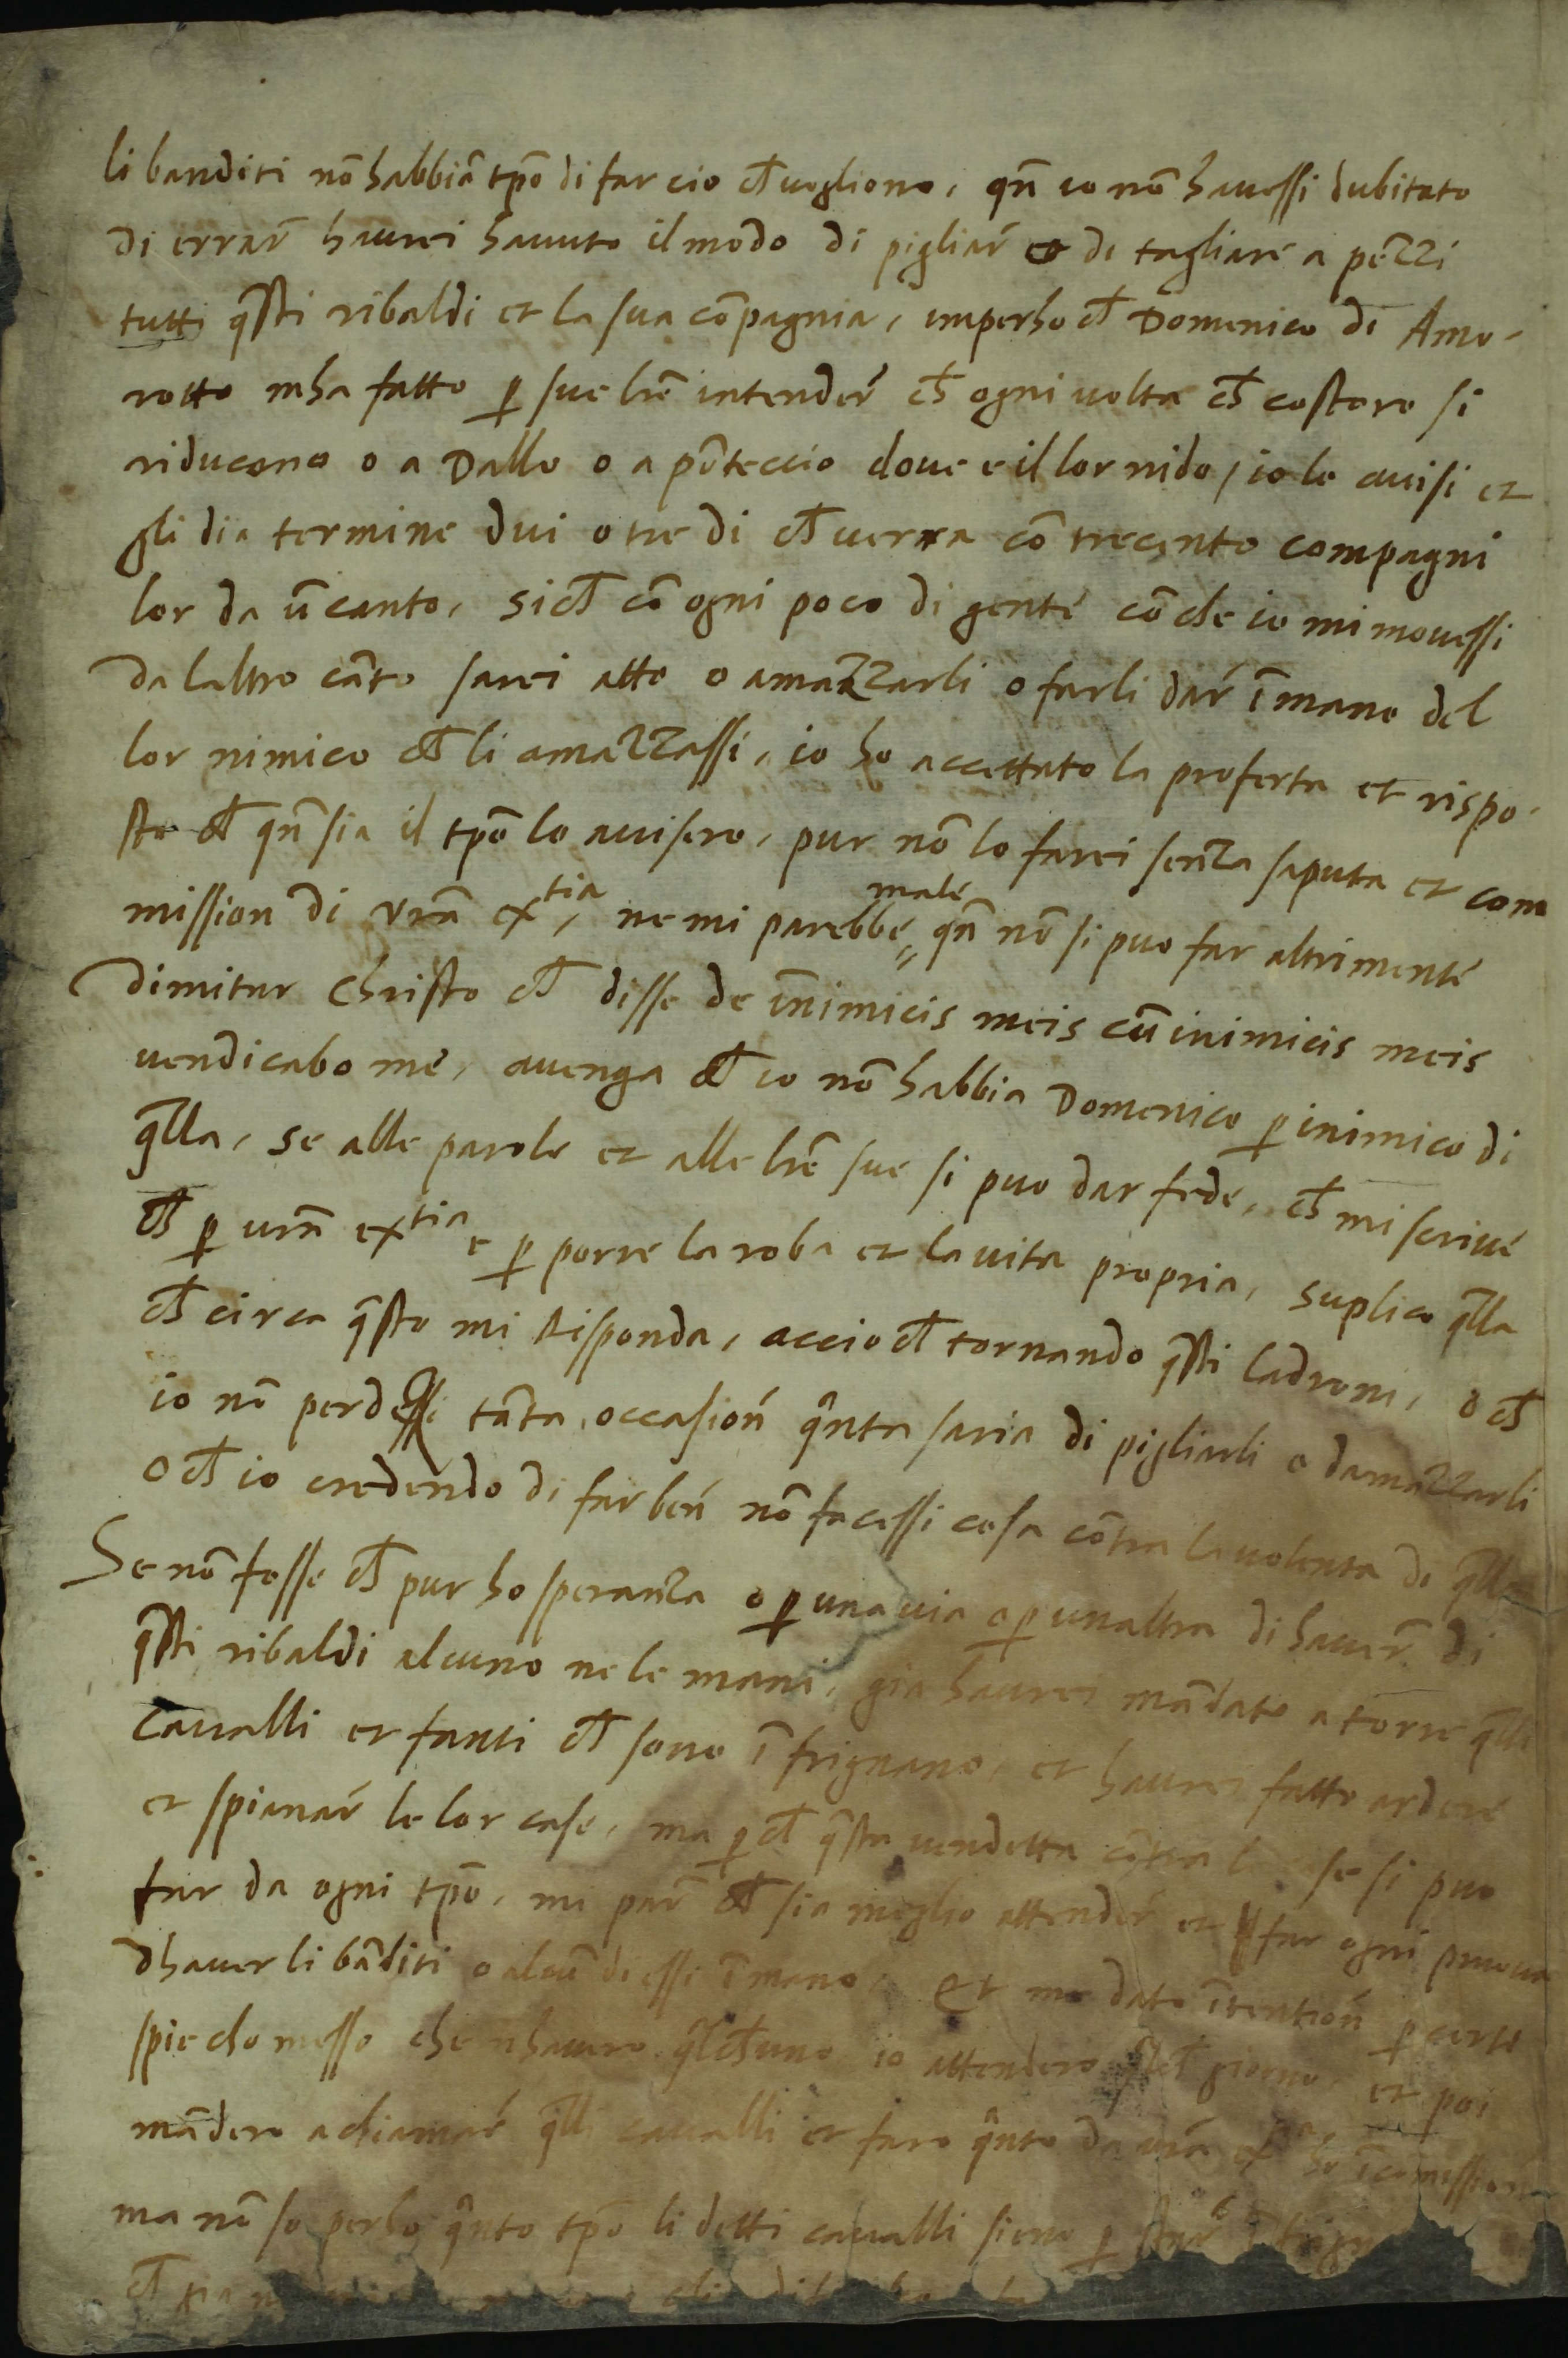 li banditi nō habbiā tp̄o di far cio ch̄ uogliono, qn̄ io nō hauessi dubitato
di errar̄ haurei hauuto il modo di pigliar̄ o di tagliare a pezzi
tutti q̄sti ribaldi et la sua cōpagnia, imperho ch̄ Domenico di Amo-
rotto mha fatto ꝑ sue lr̄e intender̄ ch̄ ogni uolta ch̄ costoro si
riducono o a Dallo o a pōteccio doue e il lor nido, io lo auisi et
gli dia termine dui o tre di ch̄ uerra cō trecento compagni
lor da ū canto, sich̄ cō ogni poco di gente cō che io mi mouessi
da laltro cāto sarei atto o amazzarli o farli dar̄ ī mano del
lor nimico ch̄ li amazzassi, io ho accettato la proferta et rispo-
sto ch̄ qn̄ sia il tp̄o lo auisero, pur nō lo farei senza saputa et com
mission di vrā extia, ne mi parebbe male qn̄ nō si puo far altrimente
dimitar Christo ch̄ disse de inimicis meis cū inimicis meis
uendicabo me, auenga ch̄ io nō habbia Domenico ꝑ inimico di
q̄lla, se alle parole et alle lr̄e sue si puo dar fede, ch̄ mi scriue
ch̄ ꝑ urā extia e ꝑ porre la roba et la uita propria, suplico q̄lla
ch̄ circa q̄sto mi risponda, accio ch̄ tornando q̄sti ladroni, o ch̄
io nō perdessi tāta occasion̄ q̄nta saria di pigliarli o damazzarli
o ch̄ io credendo di far ben̄ nō facessi cosa cōtra la uolonta di q̄lla
Se nō fosse ch̄ pur ho speranza o ꝑ una uia o ꝑ unaltra di hauer̄ di
q̄sti ribaldi alcuno ne le mani, gia haurei mādato a torre q̄lli
caualli et fanti ch̄ sono ī frignano, et haurei fatto ardere
et spianar̄ le lor case, ma ꝑch̄ q̄sta uendetta cōtra le se si puo
far da ogni tp̄o, mi par̄ ch̄ sia meglio attender̄ et far ogni pruoua
dhauer li bāditi o alcū di essi ī mano, et me dato ītention̄ ꝑ certe
spie cho messo che nhauero q̄lch̄uno io attendero q̄lch̄ giorno, et poi
māderò a chiamar̄ q̄lli caualli et faro q̄nto da urā ex ho ī comission̄
ma nō so perho q̄nto tp̄o li detti caualli sieno ꝑ star̄ ī frign
ch̄ gia